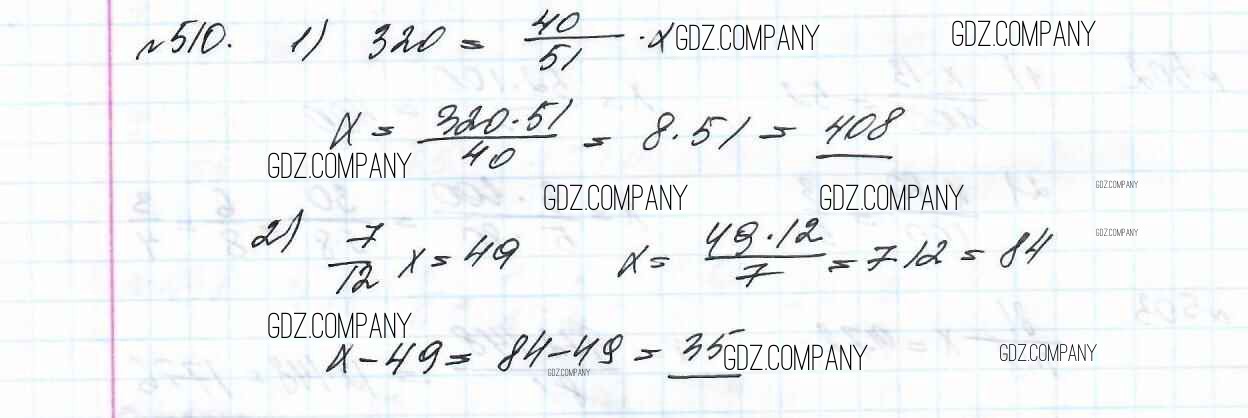 №510. 1) 320 = 40/51 · x GDZ.COMPANY GDZ.COMPANY
x = 320·51/40 = 8·51 = 408
GDZ.COMPANY
GDZ.COMPANY GDZ.COMPANY GDZ.COMPANY
2) 7/12 x = 49 x = 49·12/7 = 7·12 = 84 GDZ.COMPANY
GDZ.COMPANY
x - 49 = 84 - 49 = 35 GDZ.COMPANY GDZ.COMPANY
GDZ.COMPANY